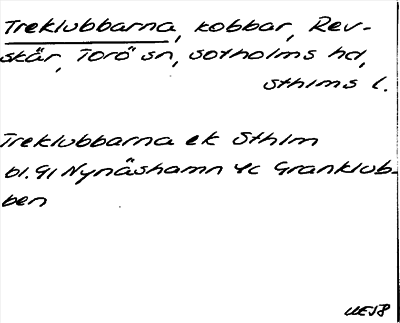 Treklubbarna, kobbar, Rev-
skär, Torö sn, Sotholms hd,
Sthlms l.
Treklubbarna ek Sthlm
bl. 91 Nynäshamn 4c Granklub-
ben